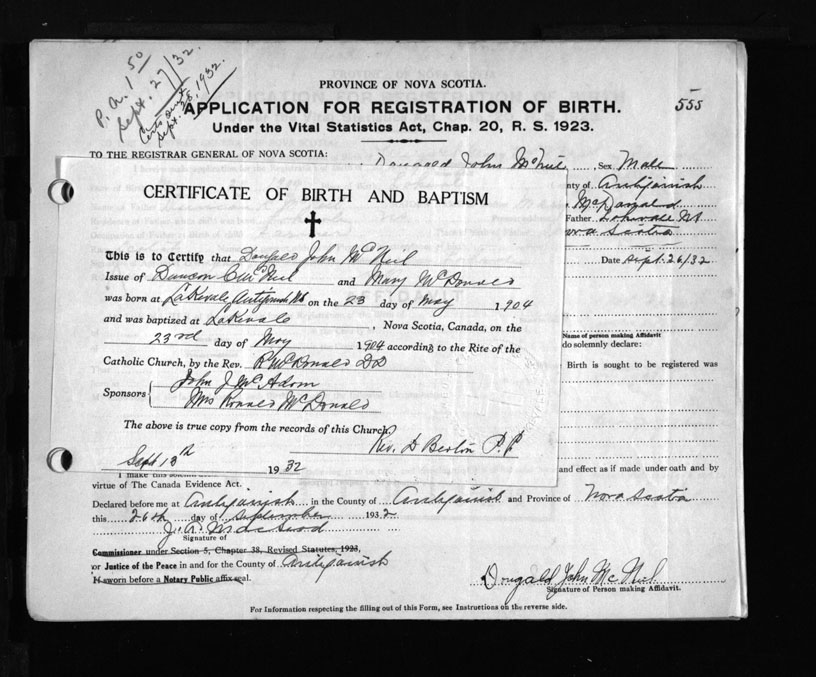 P. A. 1 50
Sept. 27/32.
Sept. 28, 1932.
PROVINCE OF NOVA SCOTIA.
APPLICATION FOR REGISTRATION OF BIRTH.
555
Under the Vital Statistics Act, Chap. 20, R. S. 1923.
TO THE REGISTRAR GENERAL OF NOVA SCOTIA:
Dougald John McNeil Sex Male
nty of Antigonish
McDonald
Father Lakevale NS
ova Scotia
Date Sept. 26/32
CERTIFICATE OF BIRTH AND BAPTISM
This is to Certify that Dougald John McNeil
Issue of Duncan C McNeil and Mary McDonald
was born at Lakevale, Antigonish NS on the 23 day of May 1904
and was baptized at Lakevale, Nova Scotia, Canada, on the
23rd day of May 1904 according to the Rite of the
Catholic Church, by the Rev. R McDonald DD
Sponsors { John J McAdam
Mrs Ronald McDonald
The above is true copy from the records of this Church.
Rev. D P. P
Sept 13th 1932
Name of person making Affidavit
do solemnly declare:
Birth is sought to be registered was
I make this
and effect as if made under oath and by
virtue of The Canada Evidence Act.
Declared before me at Antigonish in the County of Antigonish and Province of Nova Scotia
this 26th day of September 1932
J. A. MacLeod
Signature of
Commissioner under Section 5, Chapter 38, Revised Statutes, 1923,
or Justice of the Peace in and for the County of Antigonish
If sworn before a Notary Public affix seal.
Dougald John McNeil
Signature of Person making Affidavit.
For Information respecting the filling out of this Form, see Instructions on the reverse side.